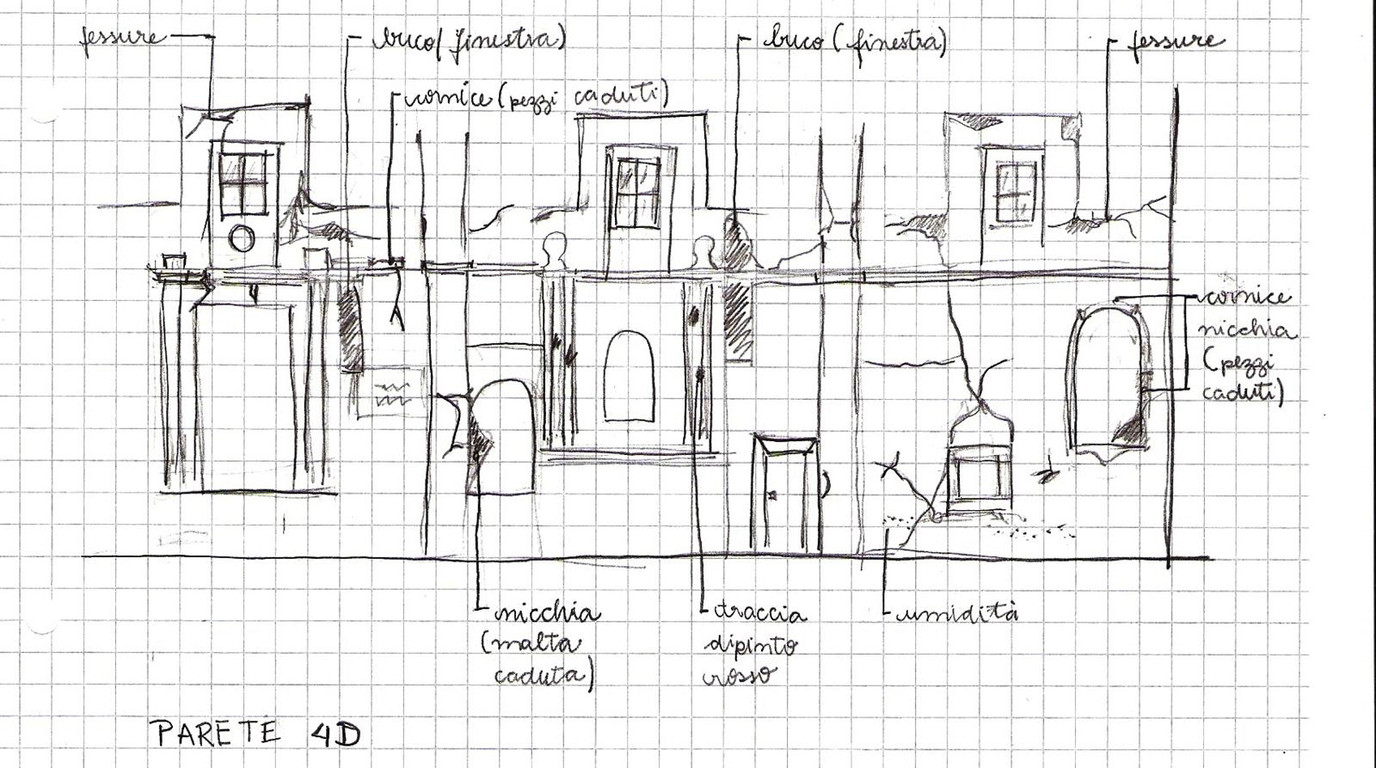 fessure
buco (finestra)
buco (finestra)
fessure
cornice (pezzi caduti)
cornice
nicchia
(pezzi
caduti)
nicchia
(malta
caduta)
traccia
dipinto
rosso
umidità
PARETE 4D